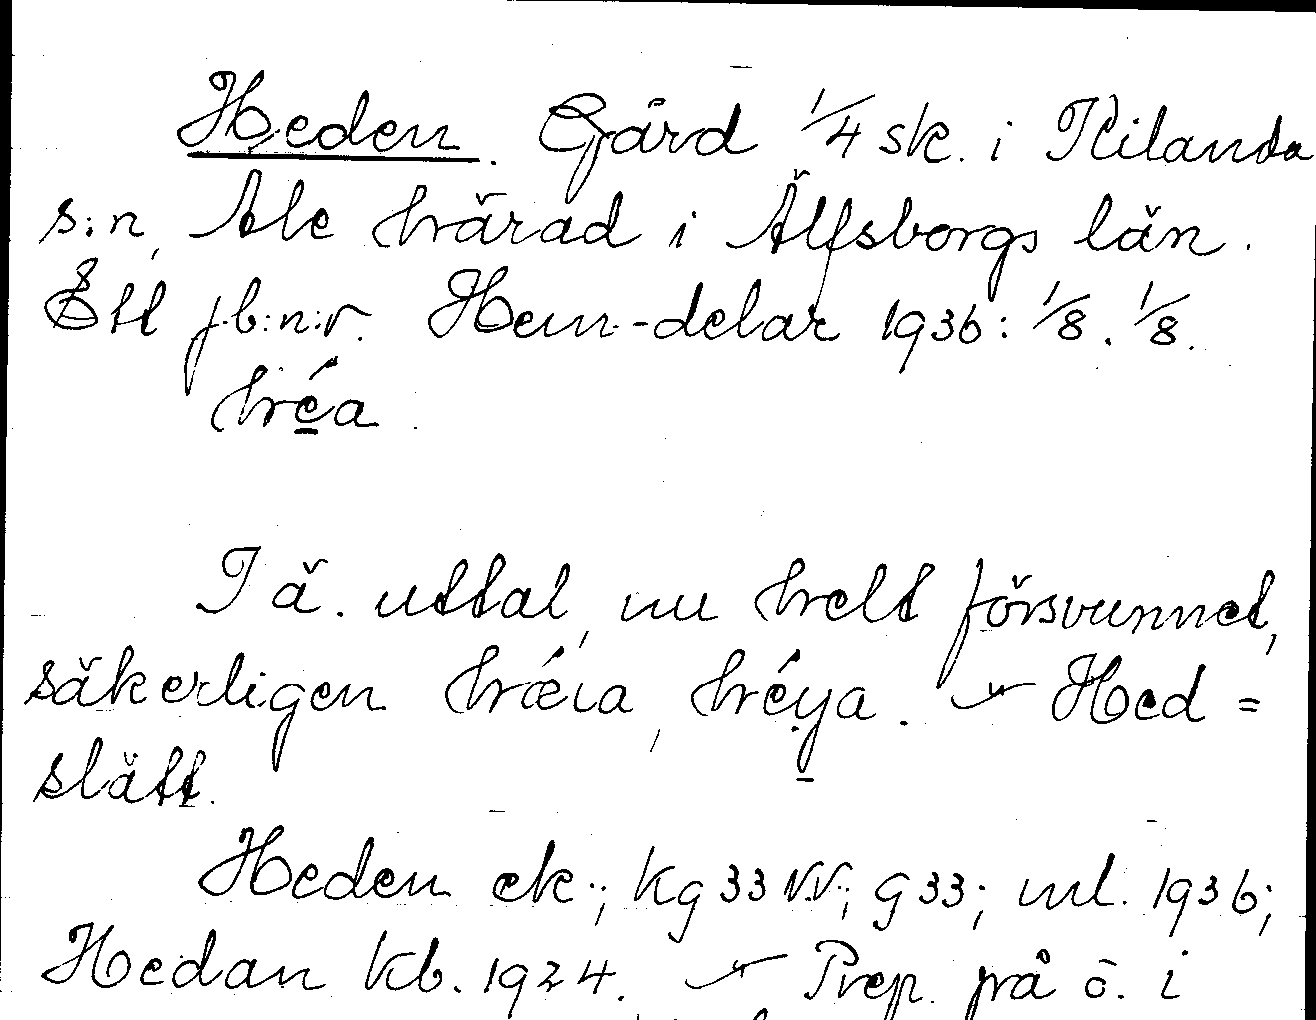 Heden. Gård 1/4 sk. i Kilanda
s:n, Ale härad i Älfsborgs län.
Ett jb:n:r. Hem.-delar 1936: 1/8. 1/8.
héa.
I ä. uttal, nu helt försvunnet,
säkerligen hǽia, héya. — Hed =
slätt.
Heden ek.; kg 33 NV.; g 33; ml. 1936;
Hedan kb. 1924. — Prep. på o. i